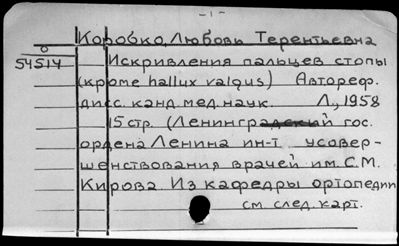 - 1 -
Коробко, Любовь Терентьевна
54514 Искривления пальцев стопы
(кроме hallux valgus) Автореф.
дисс. канд. мед. наук. Л., 1958
15 стр. (Ленинградский гос.
ордена Ленина ин-т усовер-
шенствования врачей им. С.М.
Кирова. Из кафедры ортопедии
см. след. карт.